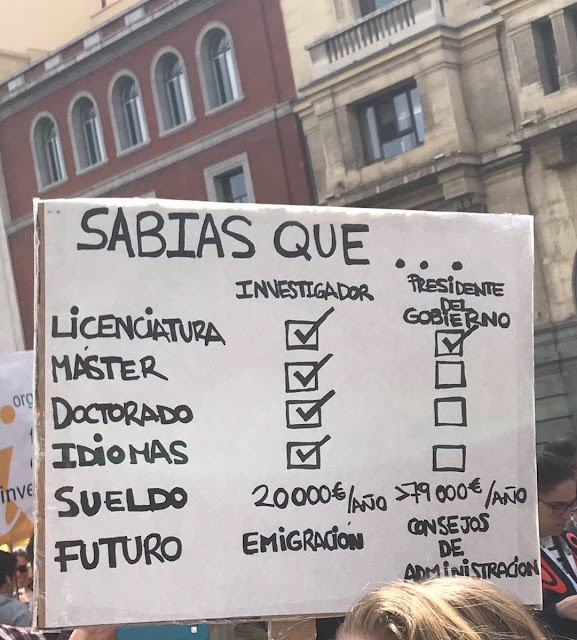 SABIAS QUE ...
INVESTIGADOR
PRESIDENTE
DEL
GOBIERNO
LICENCIATURA ☑ ☑
MÁSTER ☑ ☐
DOCTORADO ☑ ☐
IDIOMAS ☑ ☐
SUELDO 20000€/AÑO >79000€/AÑO
FUTURO EMIGRACIÓN CONSEJOS
DE
ADMINISTRACION
org
inve